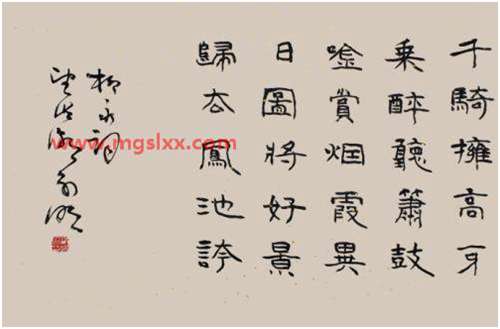 千騎擁高牙
乘醉聽簫鼓
唫賞烟霞異
日圖將好景
歸去鳳池誇
柳永詞
望海潮
www.mgslxx.com